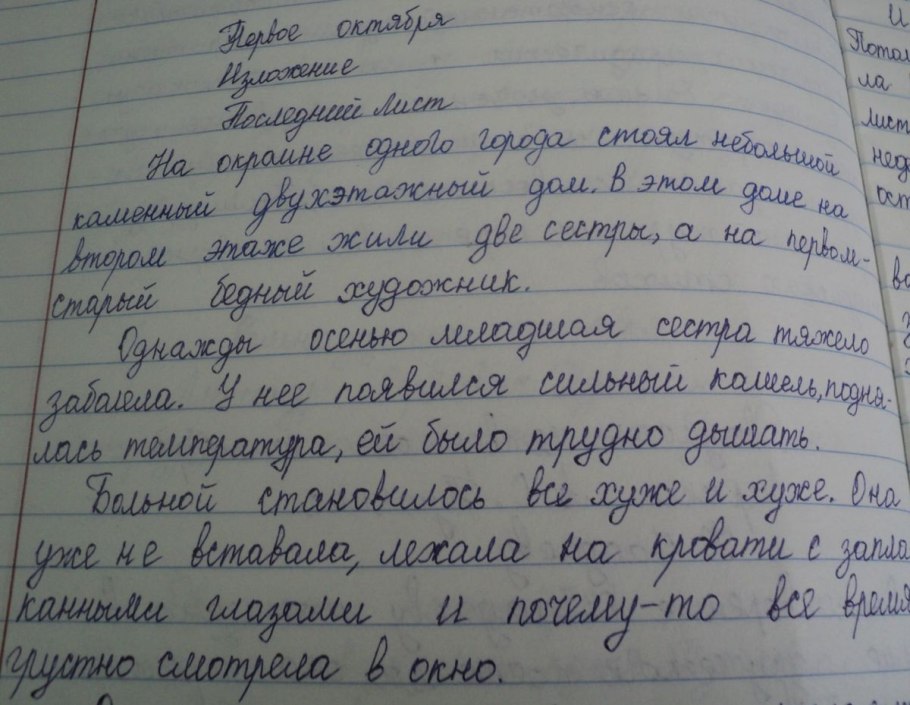 Первое октября
Изложение
Последний лист
На окраине одного города стоял небольшой
каменный двухэтажный дом. В этом доме на
втором этаже жили две сестры, а на первом-
старый бедный художник.
Однажды осенью младшая сестра тяжело
заболела. У нее появился сильный кашель, подня-
лась температура, ей было трудно дышать.
Больной становилось все хуже и хуже. Она
уже не вставала, лежала на кровати с запла
канными глазами и почему-то все время
грустно смотрела в окно.
И
ла
лист